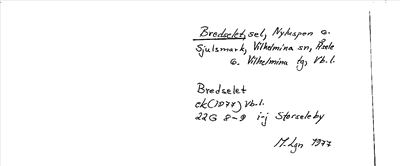 Bredselet, sel, Nyluspen o.
Sjulsmark, Vilhelmina sn, Åsele
o. Vilhelmina tg, Vb.l.
Bredselet
ek (1977) Vb.l.
22G 8-9 i-j Storseleby
M. Lgn 1977